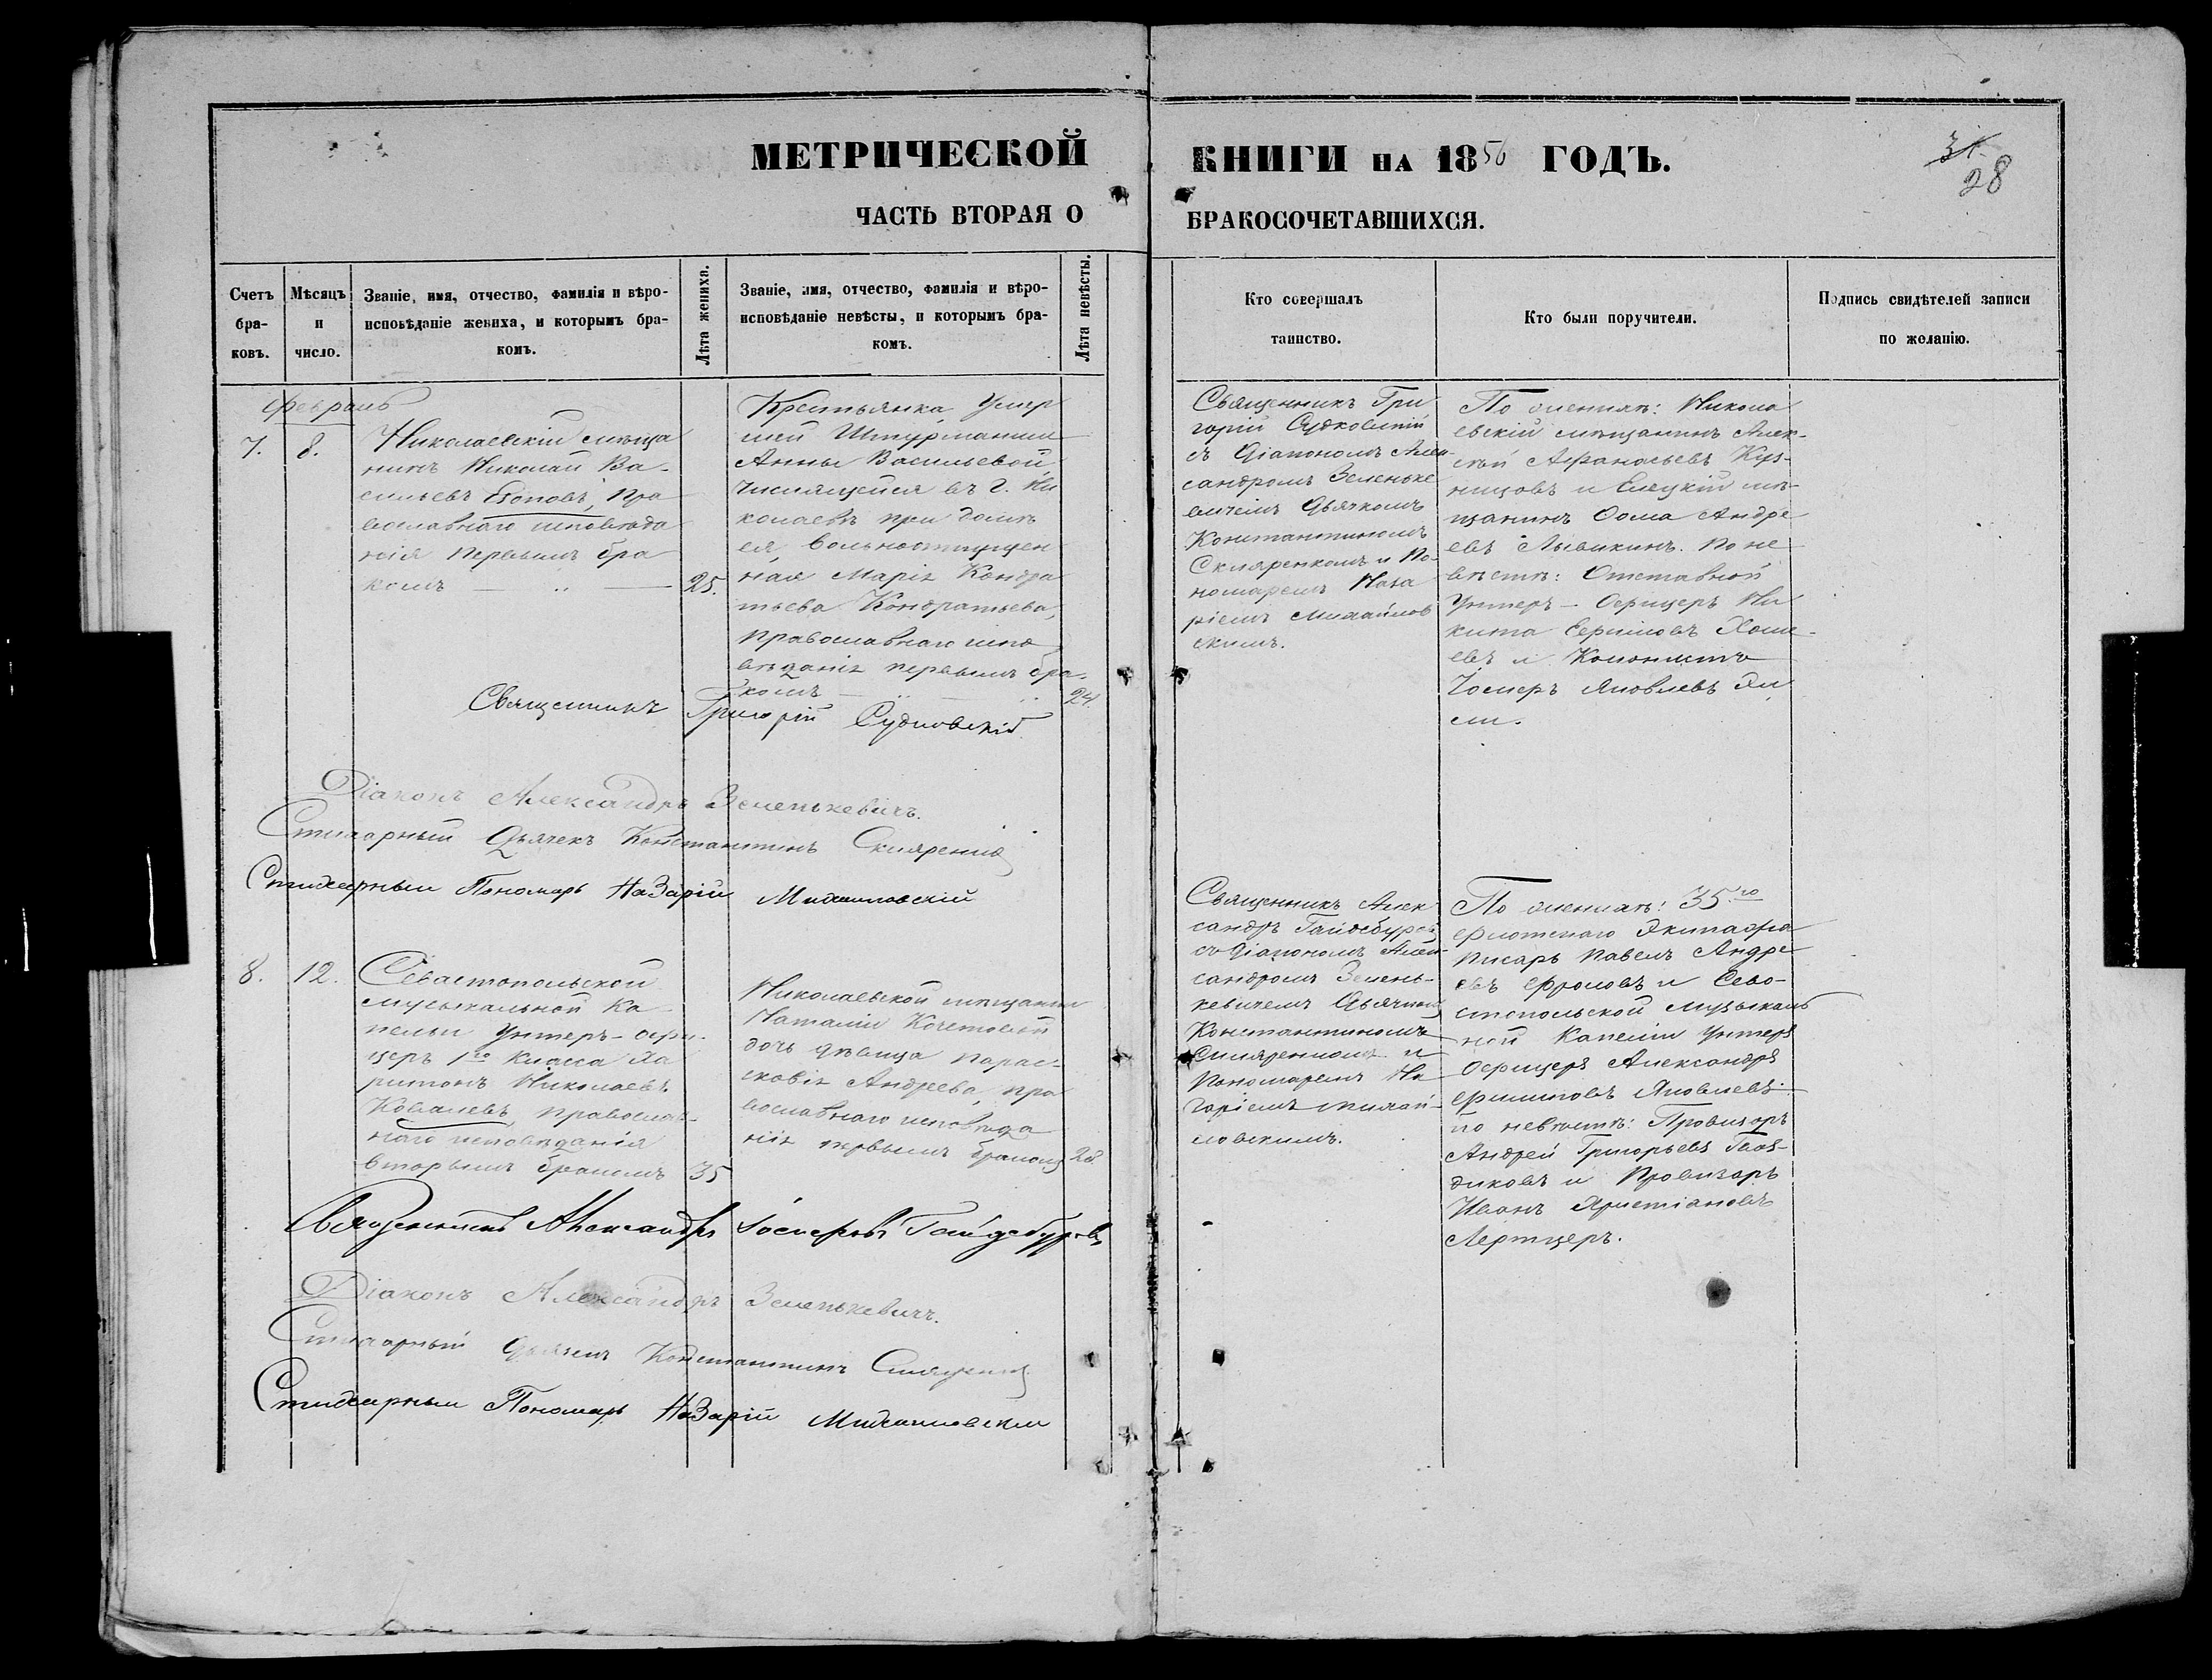 МЕТРИЧЕСКОЙ КНИГИ НА 1856 ГОДЪ.
31.
28
ЧАСТЬ ВТОРАЯ О БРАКОСОЧЕТАВШИХСЯ.
Счетъ бра-ковъ.
Мѣсяцъ и число.
Званіе, имя, отчество, фамилія и вѣро-
исповѣданіе жениха, и которымъ бра-
комъ.
Лѣта жениха.
Званіе, имя, отчество, фамилія и вѣро-
исповѣданіе невѣсты, и которымъ бра-
комъ.
Лѣта невѣсты.
Кто совершалъ
таинство.
Кто были поручители.
Подпись свидѣтелей записи
по желанію.
Февраль
7.
8.
Николаевскій мѣща
нинъ Николай Ва-
сильевъ Поповъ, пра
вославнаго исповѣда
нія первымъ бра
комъ
25.
Крестьянка Умер
шей Штурманши
Анны Васильевой
числящейся въ г. Ни
колаевѣ при домѣ
ея, вольноотпущен
ная Марія Кондра
тьева Кондратьева,
православнаго испо
вѣданія первымъ бра-
комъ
24.
Священникъ Гри
горій Судковскій
съ Діакономъ Алек-
сандромъ Зеленьке
вичемъ Дьячкомъ
Константиномъ
Скляренкомъ и По-
номаремъ Наза
ріемъ Михайлов
скимъ.
По женихѣ: Никола
евскій мѣщанинъ Алек-
сѣй Афанасьевъ Куз-
нецовъ и Елецкій мѣ-
щанинъ Фома Андре
евъ По не
вѣстѣ: Отставной
Унтеръ-Офицеръ Ни
кита Ефимовъ
евъ и Колонистъ
Іосифъ Яковлевъ
Священникъ Григорій Судковскій
Діаконъ Александръ Зеленькевичъ.
Стихарный Дьячекъ Константинъ Скляренко
Стихарный Пономарь Назарій Михайловскій
8.
12.
Севастопольской
музыкальной Ка
пельи Унтеръ-офи-
церъ 1го класса Ха
ритонъ Николаевъ
Ковалевъ, православ-
наго исповѣданія
вторымъ бракомъ
35
Николаевской мѣщанки
Наталіи Кочетовой
дочь дѣвица Парас-
ковія Андреева, пра
вославнаго исповѣда
нія первымъ бракомъ
28.
Священникъ Алек
сандръ Гайдебуровъ
съ Діакономъ Алек-
сандромъ Зелень-
кевичемъ Дьячкомъ
Константиномъ
Скляренкомъ и
Пономаремъ На
заріемъ Михай-
ловскимъ.
По женихѣ: 35го
флотскаго Экипажа
Писарь Павелъ Андре
евъ Фроловъ и Сева-
стопольской музыкаль
ной Капеліи Унтеръ
Офицеръ Александръ
Филиповъ Яковлевъ
по невѣстѣ: Провизоръ
Андрей Григорьевъ Гвоз-
диковъ и Провизоръ
Иванъ Христіановъ
Лертцеръ.
Священникъ Александръ Іосифовъ Гайдебуровъ
Діаконъ Александръ Зеленькевичъ.
Стихарный Дьячекъ Константинъ Скляренко
Стихарный Пономарь Назарій Михайловскій